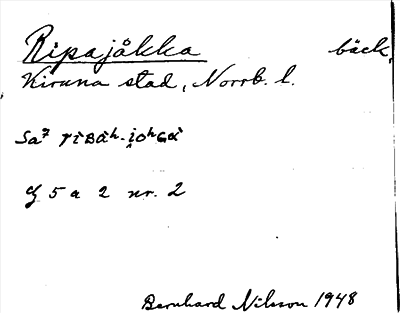 Ripajåkka bäck,
Kiruna stad, Norrb. l.
Sa7
5 a 2 nr. 2
Bernhard Nilsson 1948